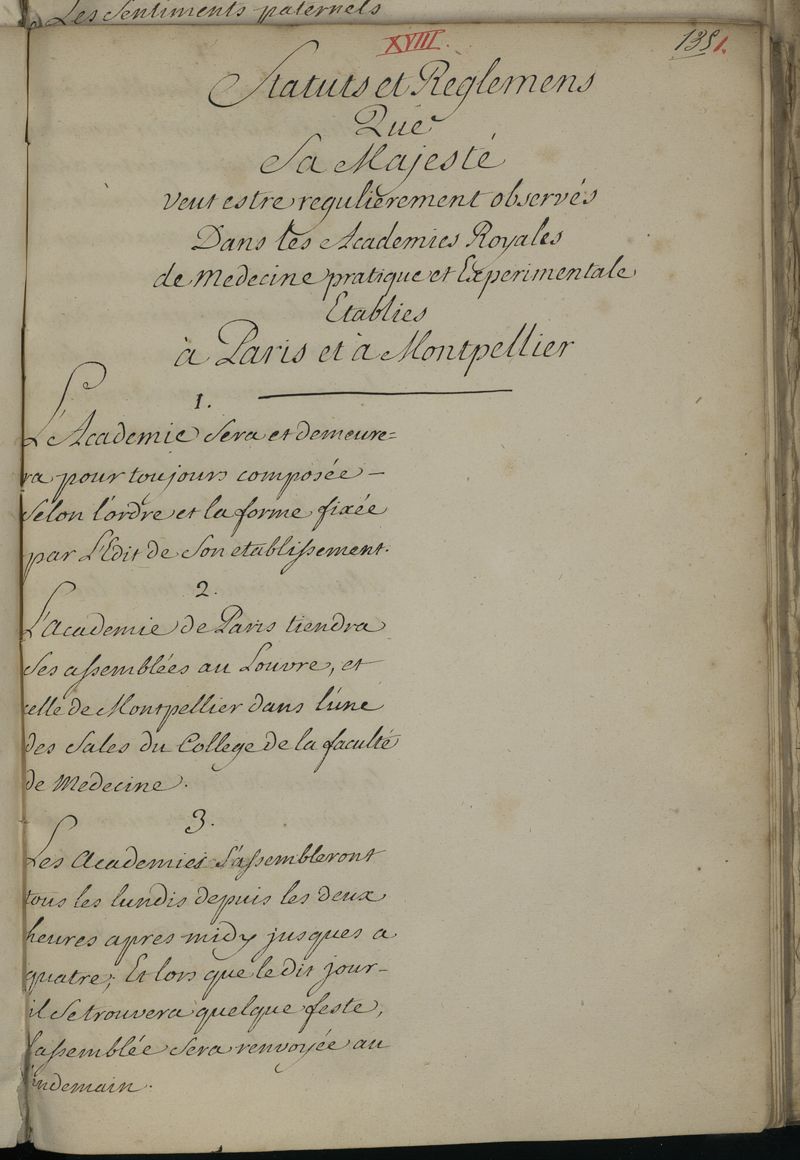 Les Sentiments paternels
XVIII.
1351.
Statuts et Reglemens
Que
Sa Majesté
veut estre regulierement observés
Dans les Academies Royales
de Medecine pratique et Experimentale
Etablies
à Paris et à Montpellier
1.
L'Academie sera et demeure=
ra pour toujours composée –
selon l'ordre et la forme fixée
par L'Edit de son etablissement.
2.
L'academie de Paris tiendra
ses assemblées au Louvre, et
celle de Montpellier dans l'une
des Sales du College de la faculté
de Medecine.
3.
Les Academies s'assembleront
tous les lundis depuis les deux
heures apres midy jusques a
quatre; Et lors que le dit jour–
il se trouvera quelque feste,
l'assemblée sera renvoyée au
lendemain.